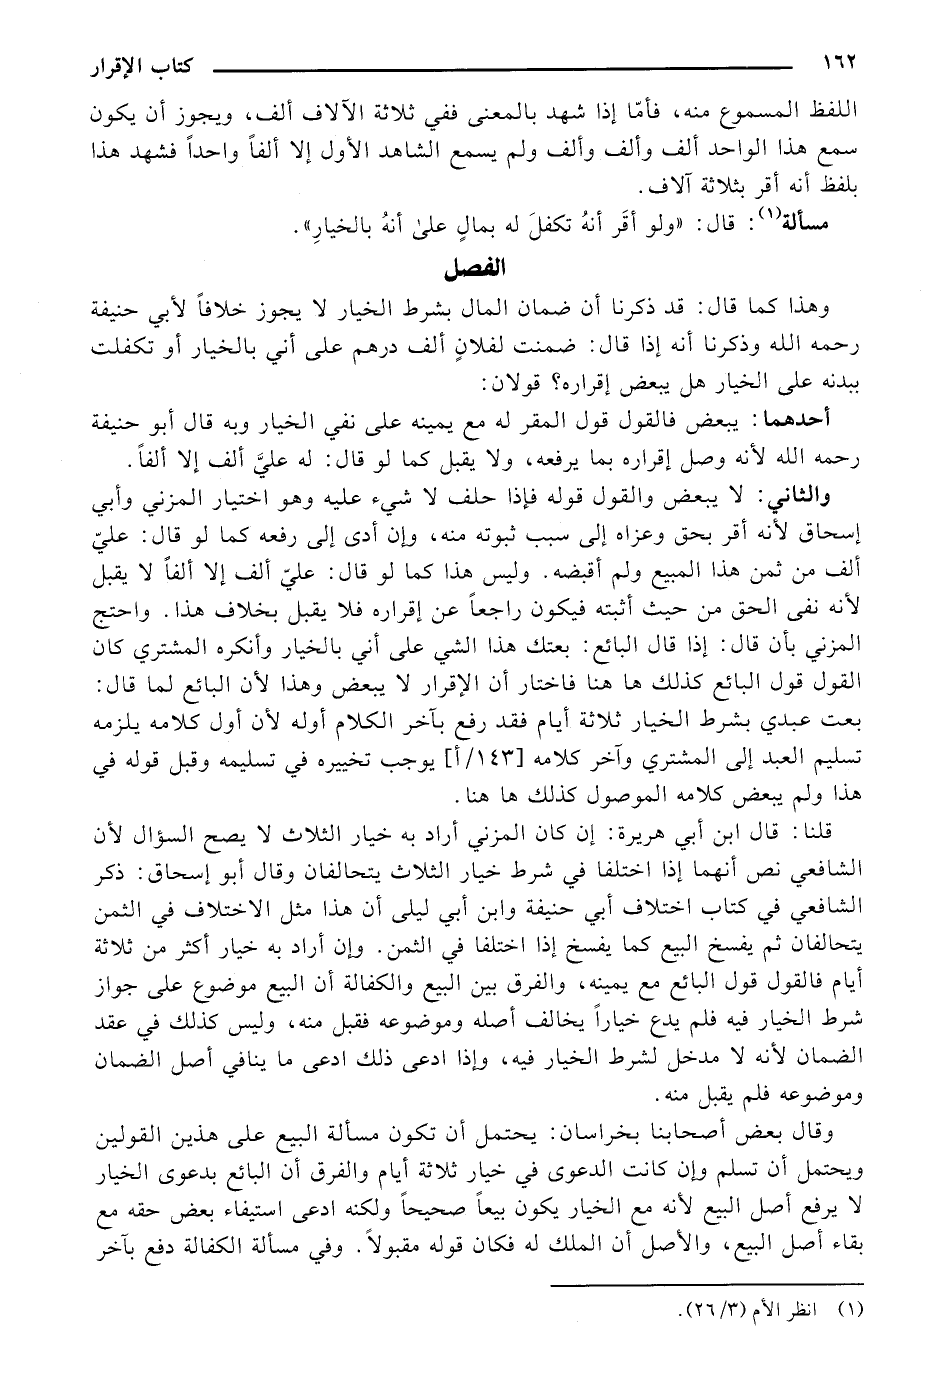 ١٦٢ كتاب الإقرار
اللفظ المسموع منه، فأمّا إذا شهد بالمعنى ففي ثلاثة الآلاف ألف، ويجوز أن يكون
سمع هذا الواحد ألف وألف وألف ولم يسمع الشاهد الأول إلا ألفاً واحداً فشهد هذا
بلفظ أنه أقر بثلاثة آلاف.
مسألة(١): قال: «ولو أقَر أنهُ تكفلَ له بمالٍ علىٰ أنهُ بالخيارِ».
الفصل
وهذا كما قال: قد ذكرنا أن ضمان المال بشرط الخيار لا يجوز خلافاً لأبي حنيفة
رحمه الله وذكرنا أنه إذا قال: ضمنت لفلانٍ ألف درهم على أني بالخيار أو تكفلت
ببدنه على الخيار هل يبعض إقراره؟ قولان:
أحدهما: يبعض فالقول قول المقر له مع يمينه على نفي الخيار وبه قال أبو حنيفة
رحمه الله لأنه وصل إقراره بما يرفعه، ولا يقبل كما لو قال: له عليَّ ألف إلا ألفاً.
والثاني: لا يبعض والقول قوله فإذا حلف لا شيء عليه وهو اختيار المزني وأبي
إسحاق لأنه أقر بحق وعزاه إلى سبب ثبوته منه، وإن أدى إلى رفعه كما لو قال: عليّ
ألف من ثمن هذا المبيع ولم أقبضه. وليس هذا كما لو قال: عليّ ألف إلا ألفاً لا يقبل
لأنه نفى الحق من حيث أثبته فيكون راجعاً عن إقراره فلا يقبل بخلاف هذا. واحتج
المزني بأن قال: إذا قال البائع: بعتك هذا الشي على أني بالخيار وأنكره المشتري كان
القول قول البائع كذلك ها هنا فاختار أن الإقرار لا يبعض وهذا لأن البائع لما قال:
بعت عبدي بشرط الخيار ثلاثة أيام فقد رفع بآخر الكلام أوله لأن أول كلامه يلزمه
تسليم العبد إلى المشتري وآخر كلامه [١٤٣/أ] يوجب تخييره في تسليمه وقبل قوله في
هذا ولم يبعض كلامه الموصول كذلك ها هنا.
قلنا: قال ابن أبي هريرة: إن كان المزني أراد به خيار الثلاث لا يصح السؤال لأن
الشافعي نص أنهما إذا اختلفا في شرط خيار الثلاث يتحالفان وقال أبو إسحاق: ذكر
الشافعي في كتاب اختلاف أبي حنيفة وابن أبي ليلى أن هذا مثل الاختلاف في الثمن
يتحالفان ثم يفسخ البيع كما يفسخ إذا اختلفا في الثمن. وإن أراد به خيار أكثر من ثلاثة
أيام فالقول قول البائع مع يمينه، والفرق بين البيع والكفالة أن البيع موضوع على جواز
شرط الخيار فيه فلم يدع خياراً يخالف أصله وموضوعه فقبل منه، وليس كذلك في عقد
الضمان لأنه لا مدخل لشرط الخيار فيه، وإذا ادعى ذلك ادعى ما ينافي أصل الضمان
وموضوعه فلم يقبل منه.
وقال بعض أصحابنا بخراسان: يحتمل أن تكون مسألة البيع على هذين القولين
ويحتمل أن تسلم وإن كانت الدعوى في خيار ثلاثة أيام والفرق أن البائع بدعوى الخيار
لا يرفع أصل البيع لأنه مع الخيار يكون بيعاً صحيحاً ولكنه ادعى استيفاء بعض حقه مع
بقاء أصل البيع، والأصل أن الملك له فكان قوله مقبولاً. وفي مسألة الكفالة دفع بآخر
(١) انظر الأم (٣/ ٢٦).